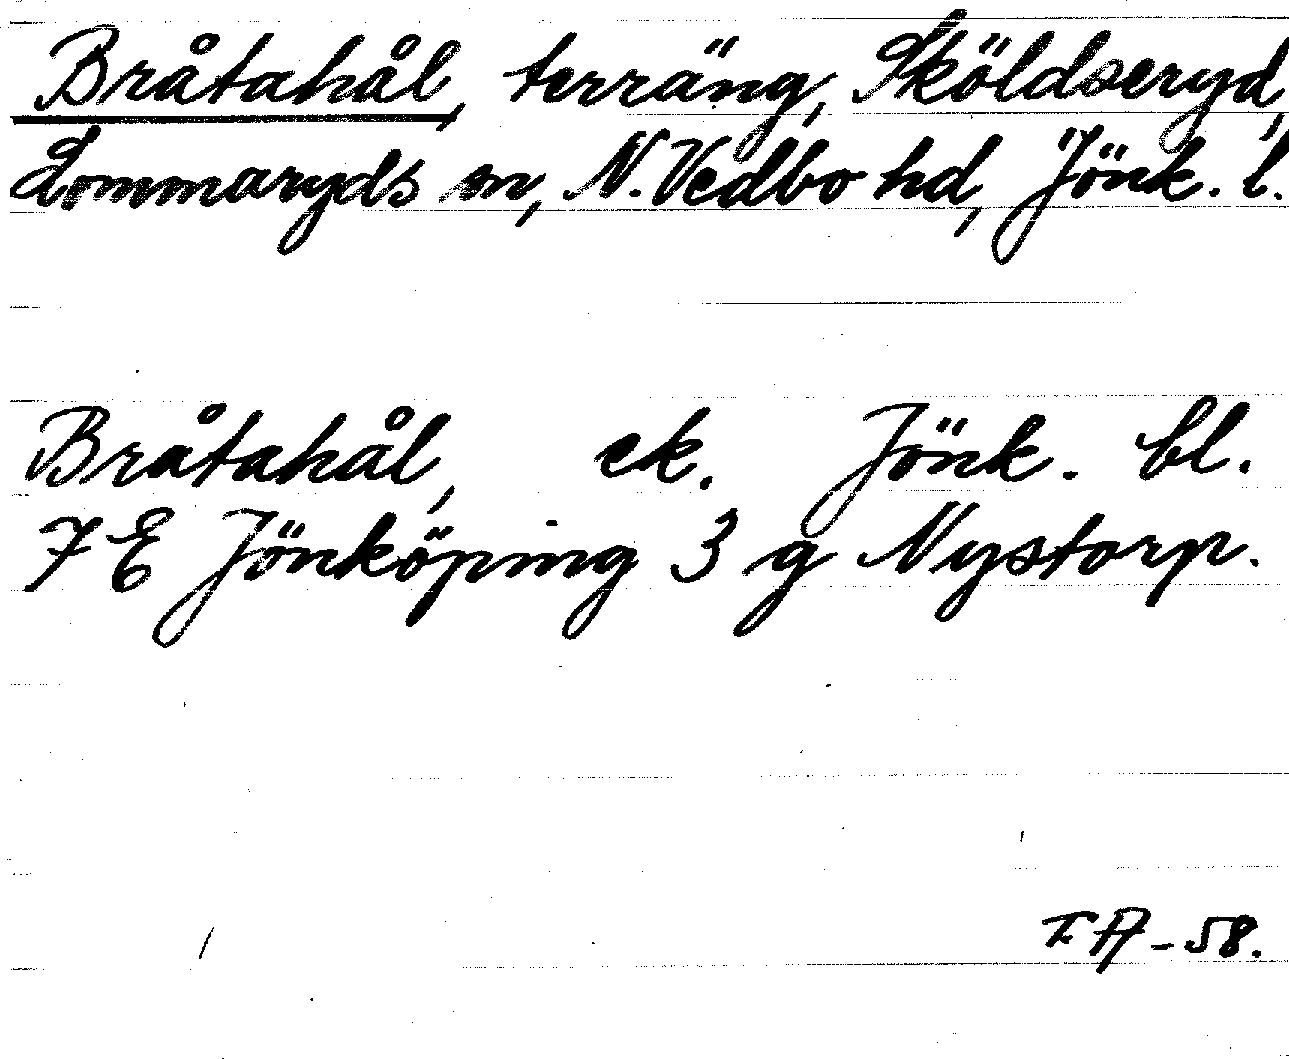 Bråtahål, terräng, Sköldseryd,
Lommaryds sn, N. Vedbo hd, Jönk. l.
Bråtahål, ek. Jönk. bl.
7 E Jönköping 3 g Nystorp.
-58.